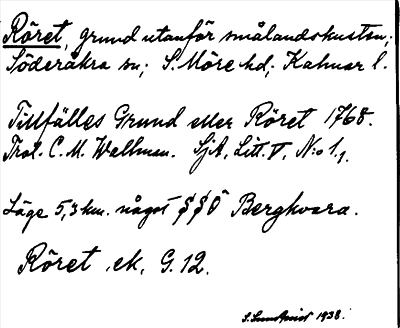 Röret, grund utanför smålandskusten;
Söderåkra sn; S. Möre hd; Kalmar l.
Tillfälles Grund eller Röret 1768.
Prot. C. M. Wallman. Sjk. Litt. V, N:o 1.
Läge 5,3 km. något Bergkvara.
Röret, ek. G. 12.
S. Sundqvist 1938.